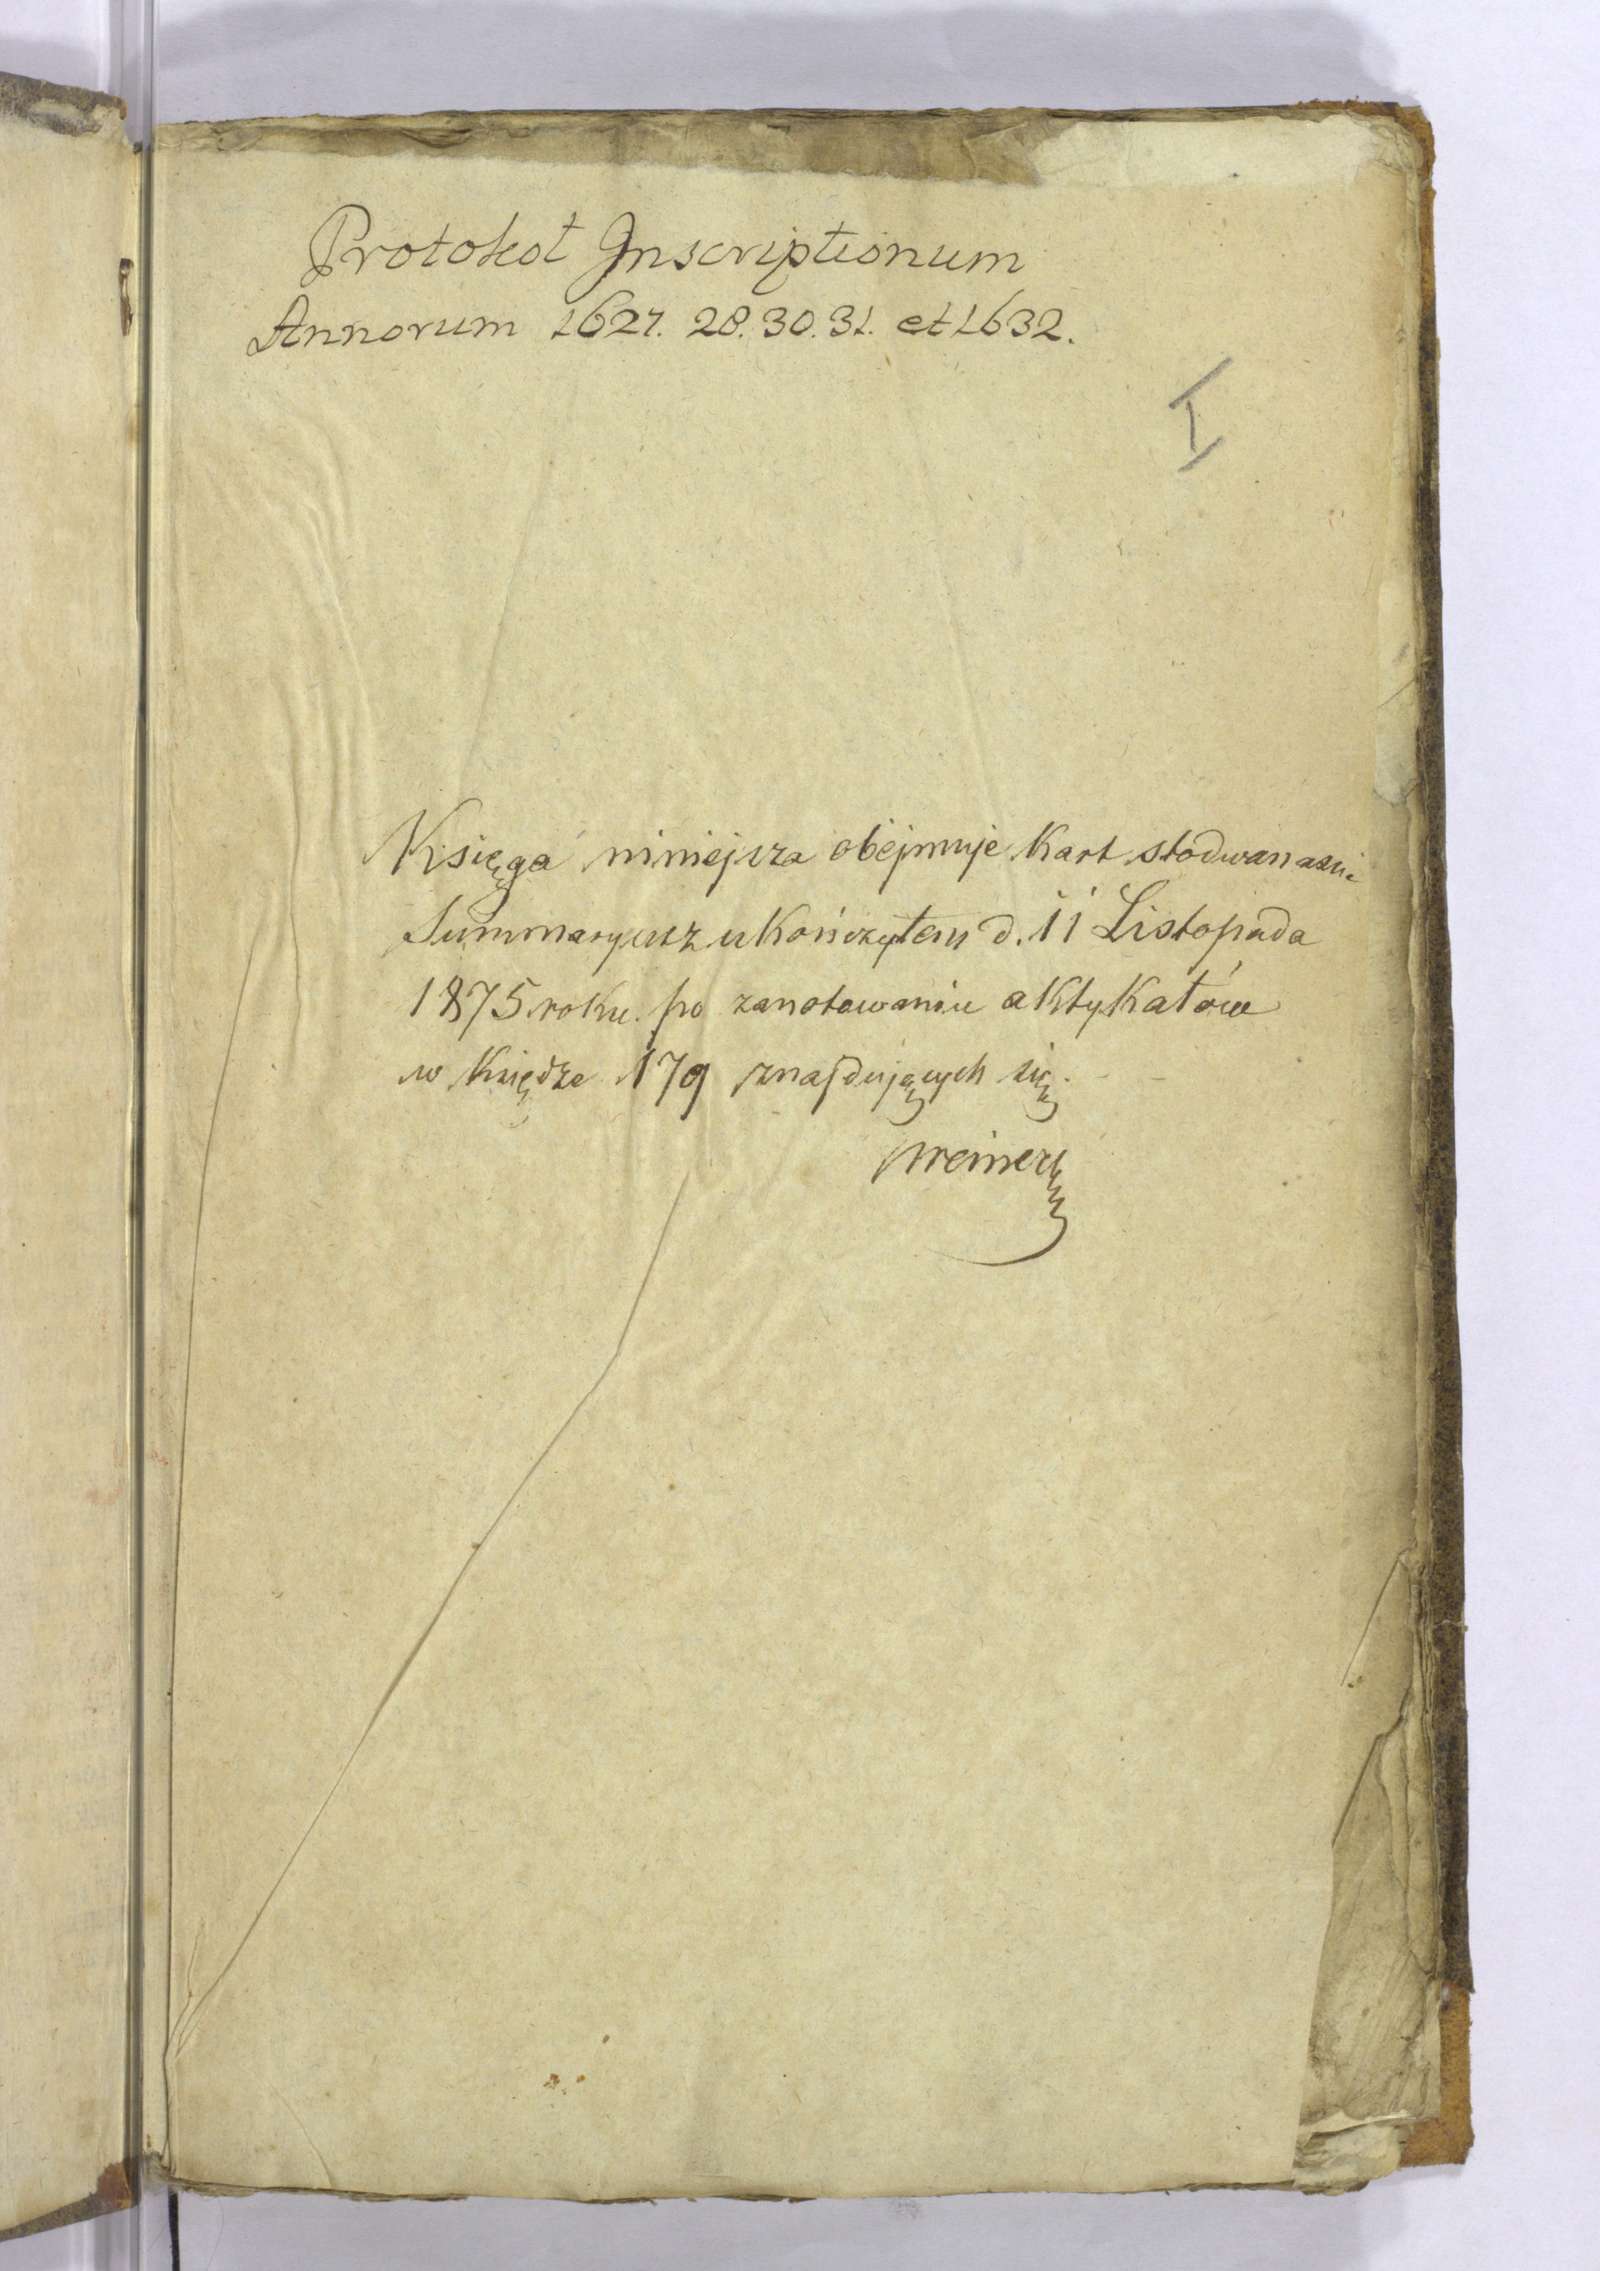 Protokół Inscriptionum
Annorum 1627. 28. 30. 31. et 1632.
I
Księga niniejsza obejmuje Kart stodwanaście
Summaryusz ukończyłem d. 11 Listopada
1875 roku. po zanotowaniu aktykatów
w Księdze 179 znajdujących się.